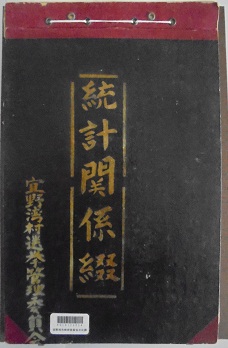 統計関係綴
宜野湾村選挙管理委員会